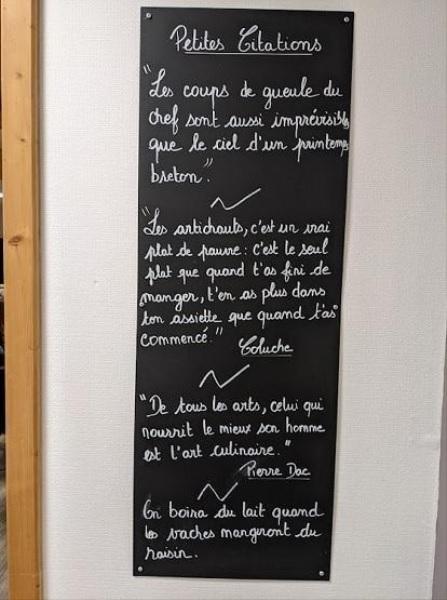 Petites Citations
"Les coups de gueule du
chef sont aussi imprévisibles
que le ciel d'un printemps
breton".
"Les artichauts, c'est un vrai
plat de pauvre : c'est le seul
plat que quand t'as fini de
manger, t'en as plus dans
ton assiette que quand t'as
commencé."
Coluche
"De tous les arts, celui qui
nourrit le mieux son homme
est l'art culinaire."
Pierre Dac
On boira du lait quand
les vaches mangeront du
raisin.